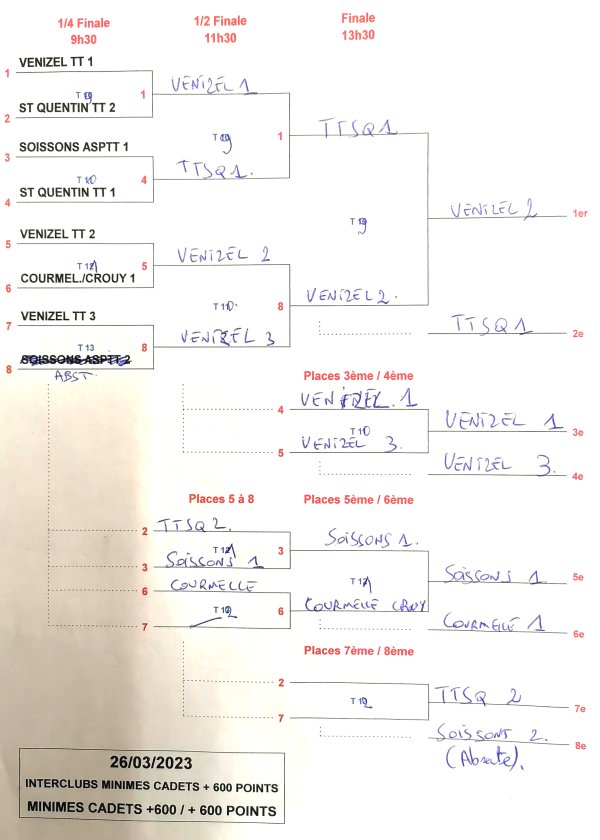 1/4 Finale 1/2 Finale Finale
9h30 11h30 13h30
1 VENIZEL TT 1
T 9 1 VENIZEL 1
2 ST QUENTIN TT 2
T 9 1 TTSQ 1
3 SOISSONS ASPTT 1
T 10 4 TTSQ 1.
4 ST QUENTIN TT 1
T 9 VENIZEL 2 1er
5 VENIZEL TT 2
T 11 5 VENIZEL 2
6 COURMEL./CROUY 1
T 10 8 VENIZEL 2.
7 VENIZEL TT 3
TTSQ 1 2e
T 13 8 VENIZEL 3
8 SOISSONS ASPTT 2
ABST.
Places 3ème / 4ème
4 VENIZEL 1
T 10 VENIZEL 1 3e
5 VENIZEL 3.
VENIZEL 3. 4e
Places 5 à 8 Places 5ème / 6ème
2 TTSQ 2.
T 11 3 SOISSONS 1.
3 SOISSONS 1
T 11 SOISSONS 1 5e
6 COURMELLE
T 12 6 COURMELLE CROUY
7
COURMELLE 1 6e
Places 7ème / 8ème
2
T 12 TTSQ 2 7e
7
SOISSONS 2. 8e
(Absente).
26/03/2023
INTERCLUBS MINIMES CADETS + 600 POINTS
MINIMES CADETS +600 / + 600 POINTS